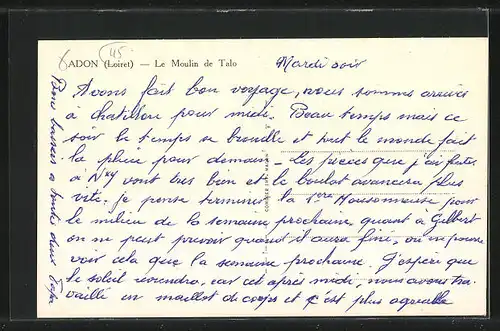 45
ADON (Loiret) — Le Moulin de Talo
Mardi soir
Avons fait bon voyage, nous sommes arrivés
à Chatillon pour midi. Beau temps mais ce
soir le temps se brouille et tout le monde fait
la pluie pour demain - les pièces que j'ai faites
à Nxy vont très bien et le boulot avancera plus
vite. je pense terminer la 1ère Moissonneuse pour
le milieu de la semaine prochaine, quant à Gilbert
on ne peut prévoir quand il aura fini, on ne pourra
voir cela que la semaine prochaine. J'espère que
le soleil viendra, car cet après midi, nous avons tra
vaillé en maillot de corps et c'est plus agréable
Bons baisers à toutes deux